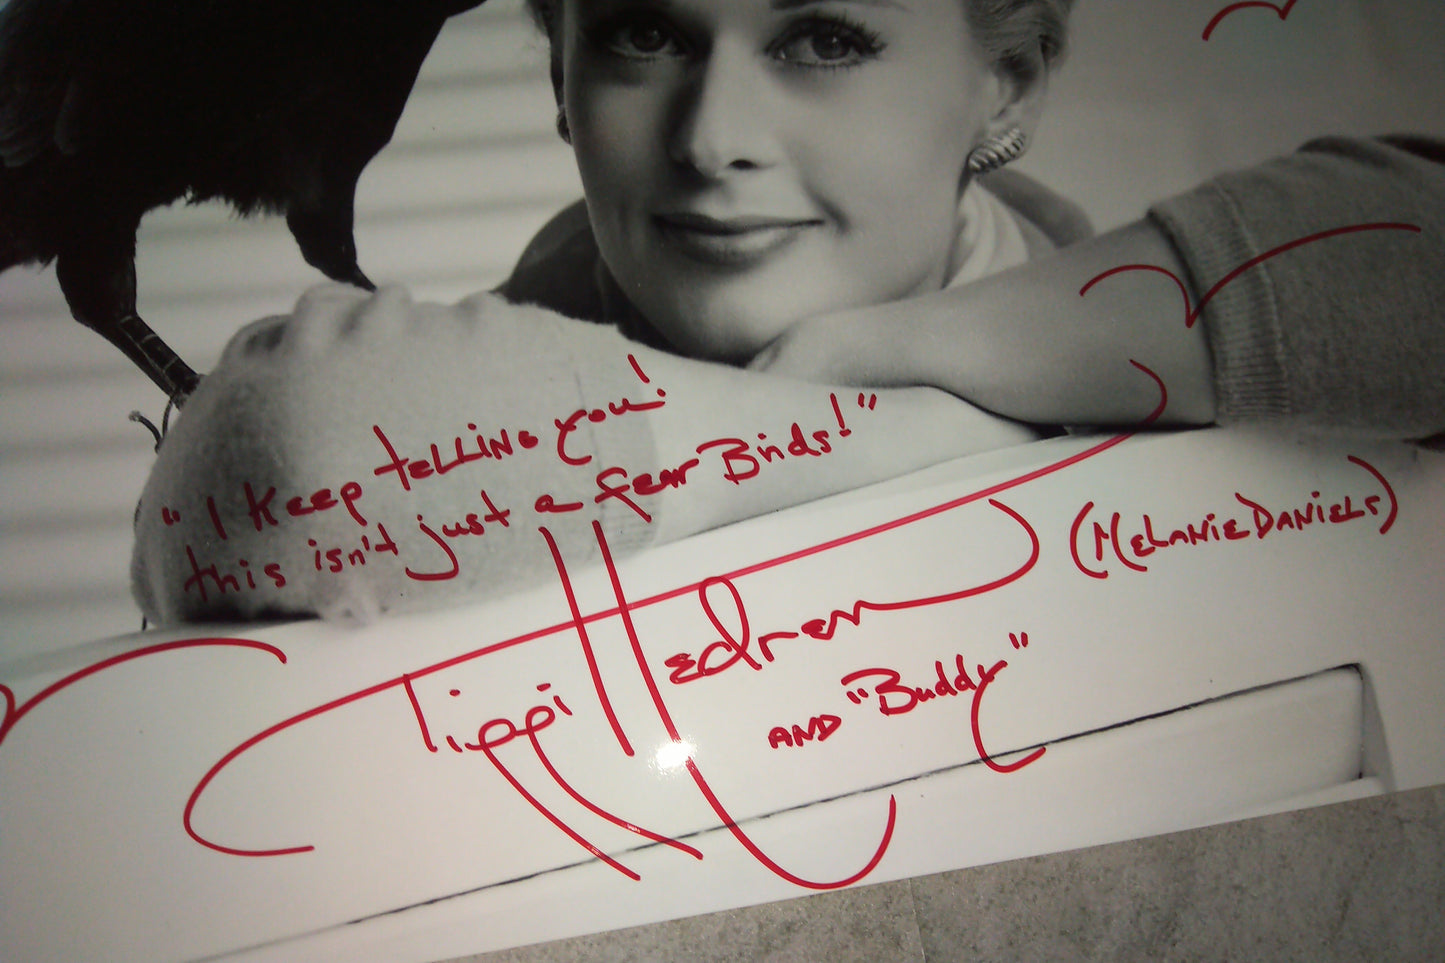 "I Keep telling you!
this isn't just a few Birds!"
Tippi Hedren
(Melanie Daniels)
and "Buddy"